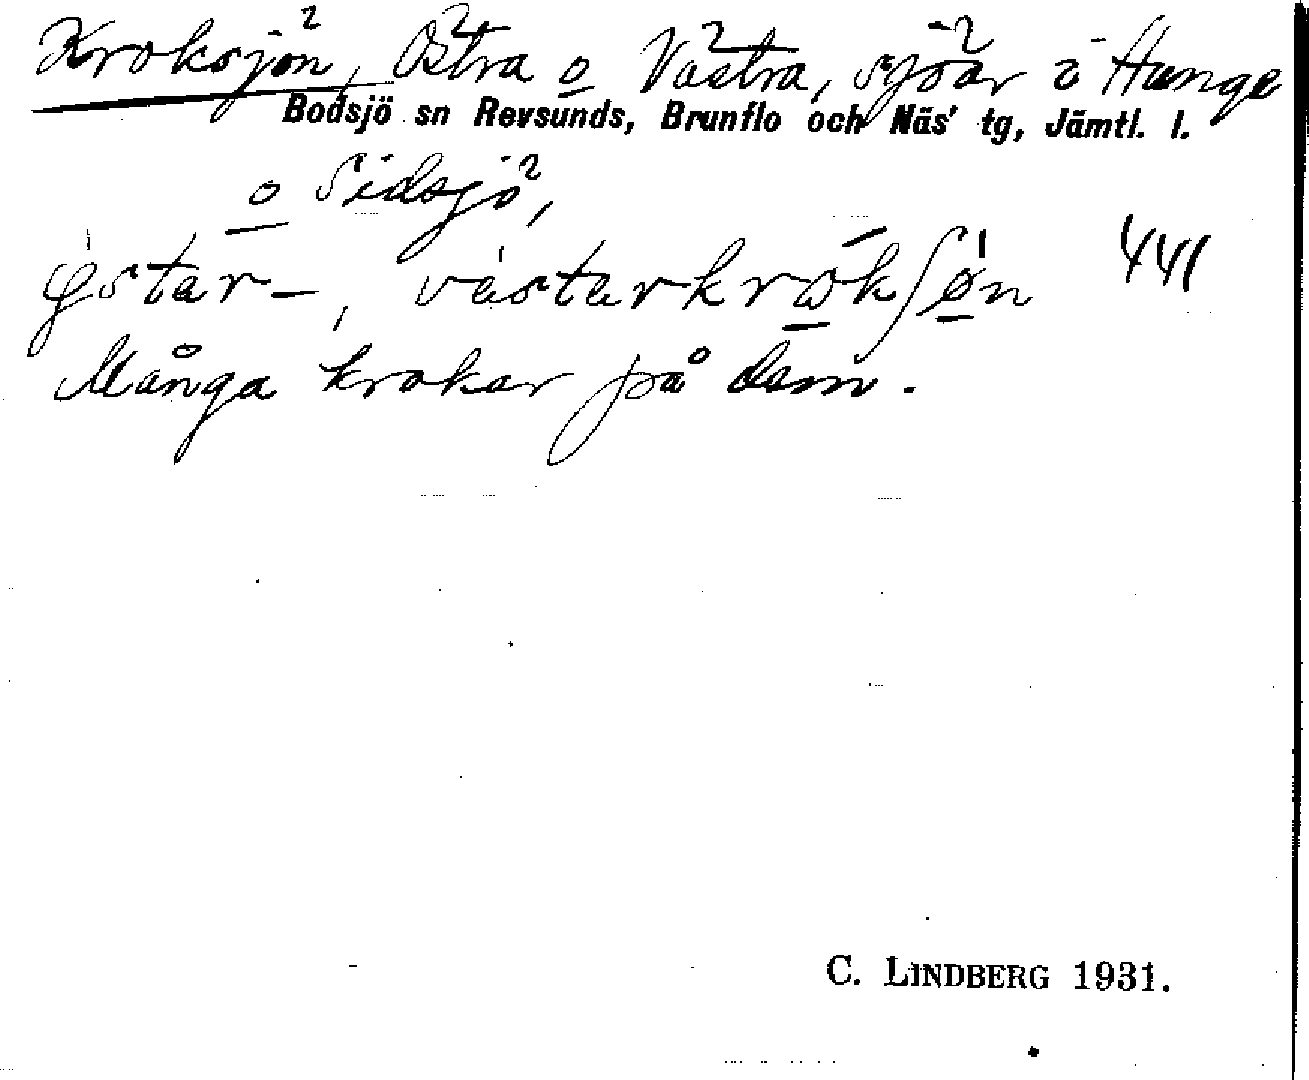 Kroksjön, Östra o Västra, sjöar i Hunge
Bodsjö sn Revsunds, Brunflo och Näs' tg, Jämtl. l.
o Sidsjö,
østar-, västarkrokʃøn 441
Många krokar på dem.
C. LINDBERG 1931.